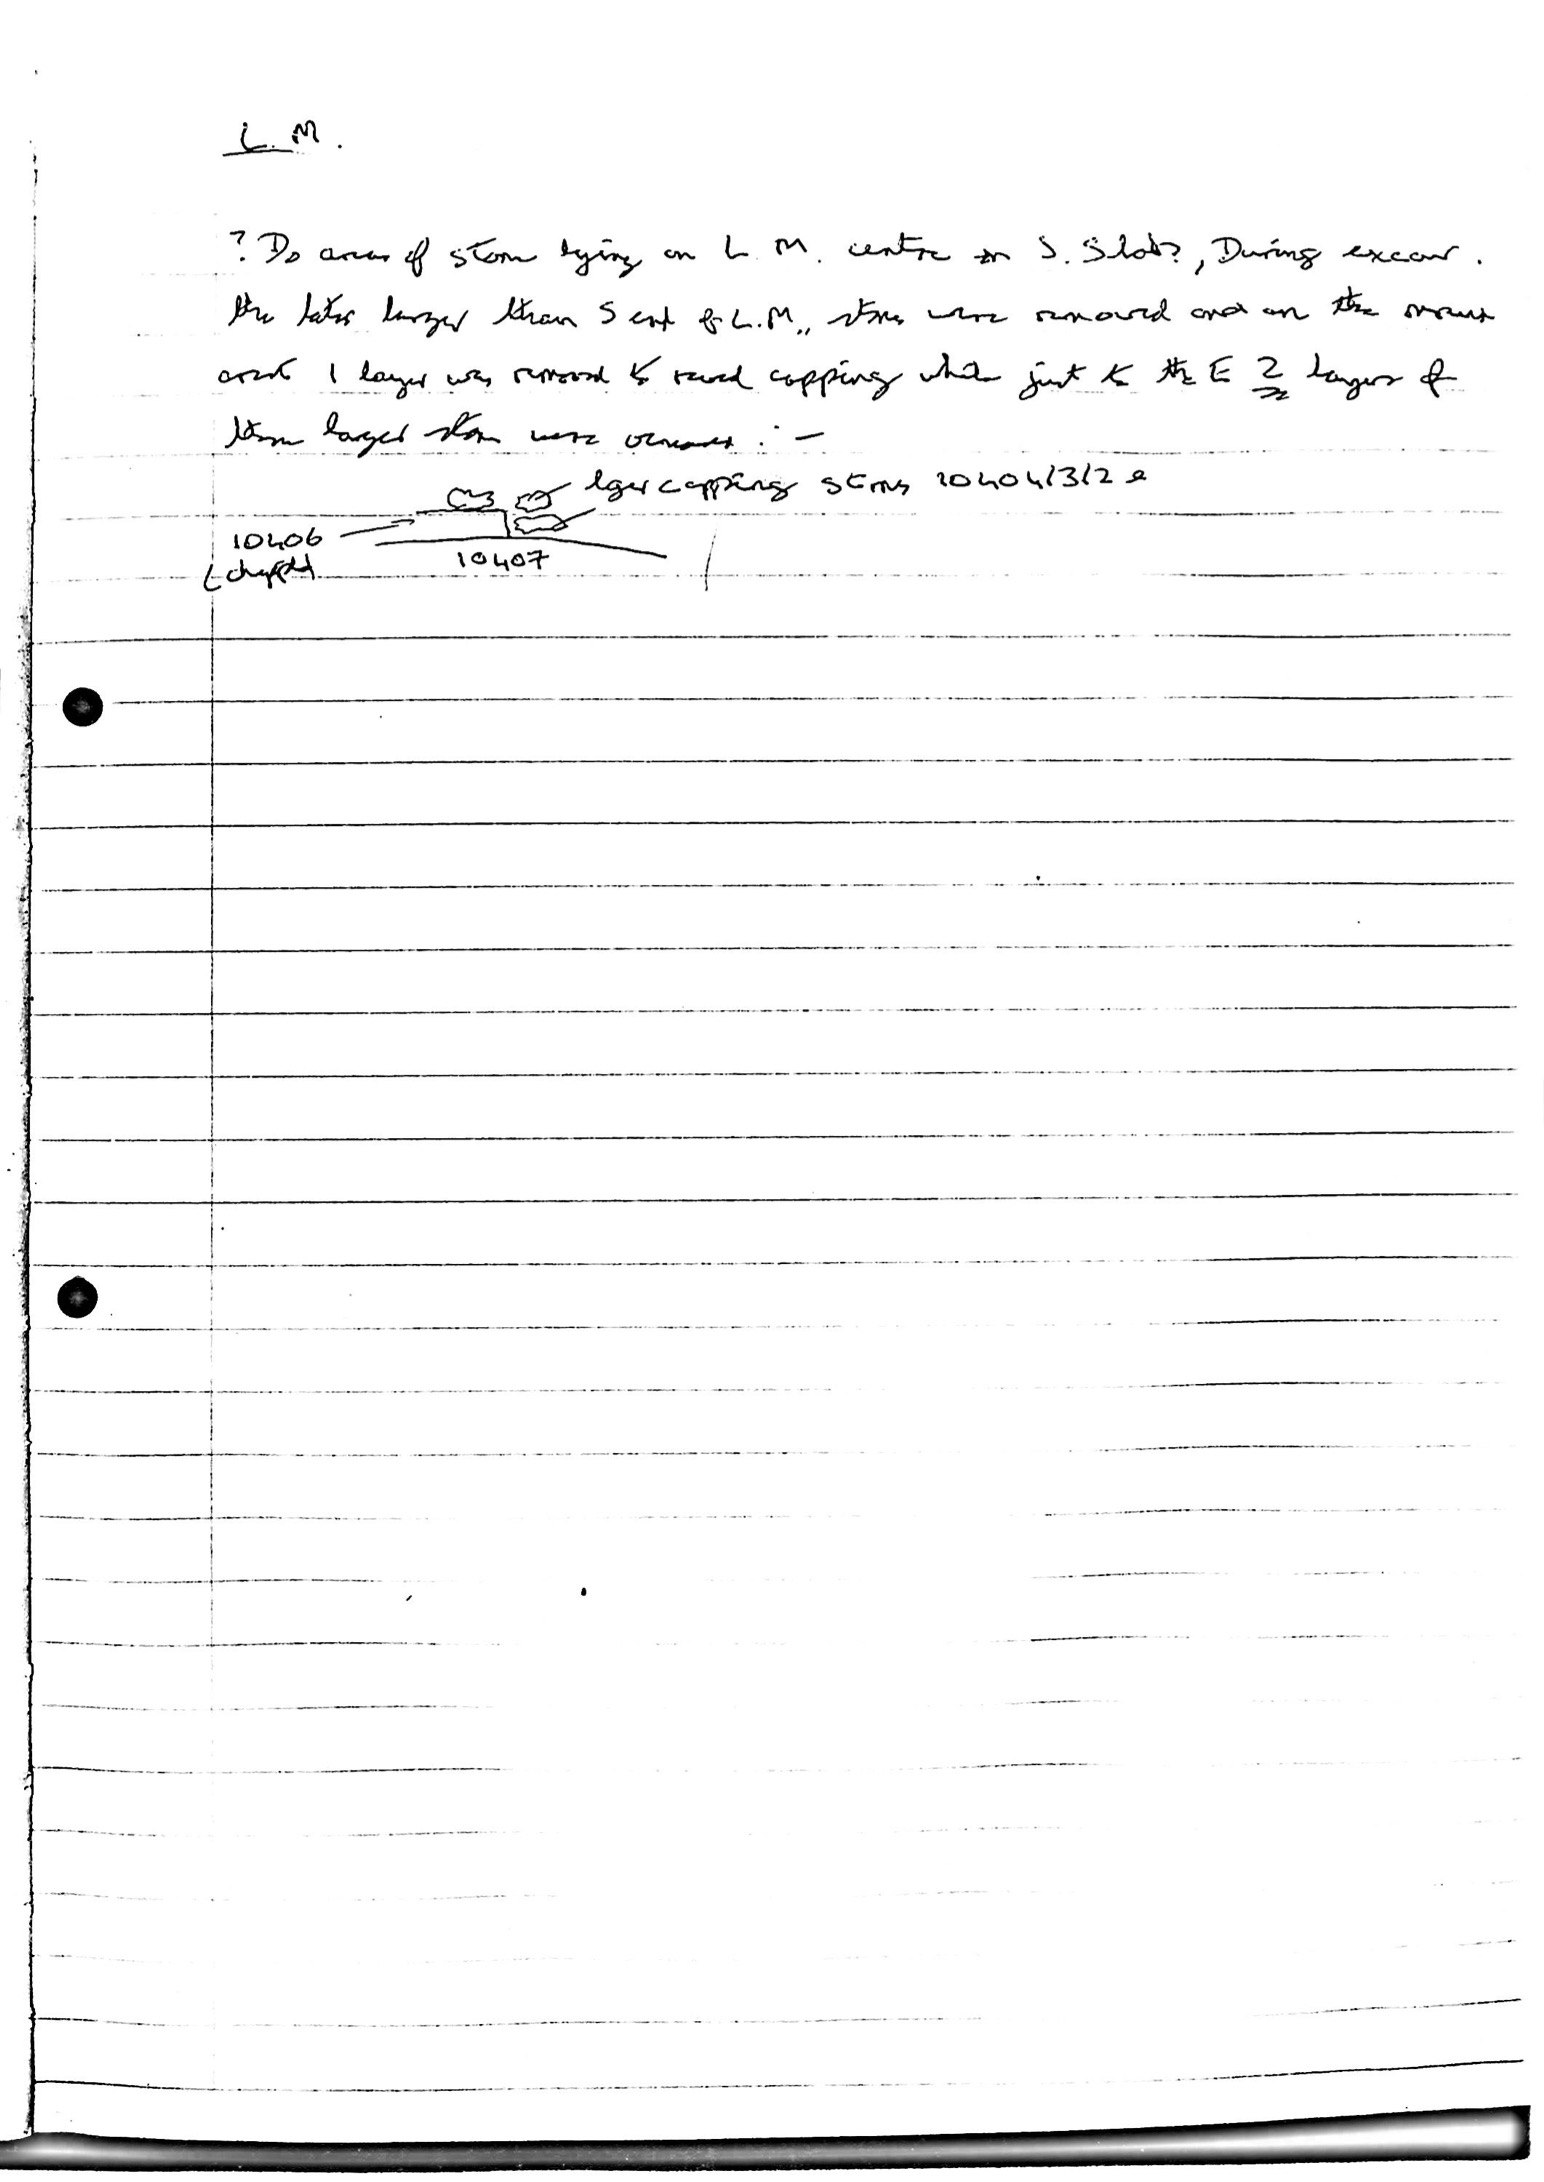 L.M.
? Do areas of stone lying on L.M. centre on S. Slot?, During excav.
the later larger than S end of L.M., stones were removed and on the mound
area 1 layer was removed to reveal capping while just to the E 2 layers of
larger stones were :-
lger capping stones 10404/3/2
10406
10407